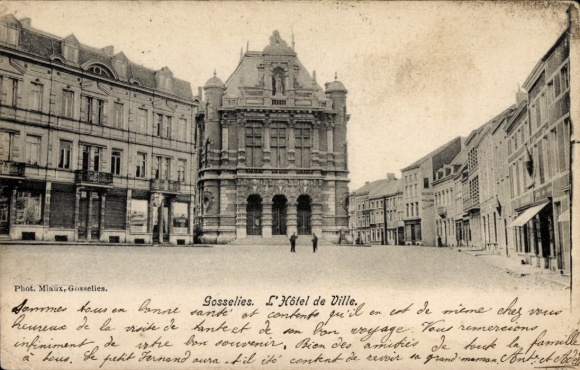 Phot. Miaux, Gosselies.
Gosselies. L'Hôtel de Ville.
Sommes tous en bonne santé et contents qu'il en est de même chez vous
heureux de la visite de tante et de son bon voyage. Vous remercions
infiniment de votre bon souvenir. Bien des amitiés de toute la famille
à tous. Le petit Fernand aura-t-il été content de revoir sa grand-maman. et